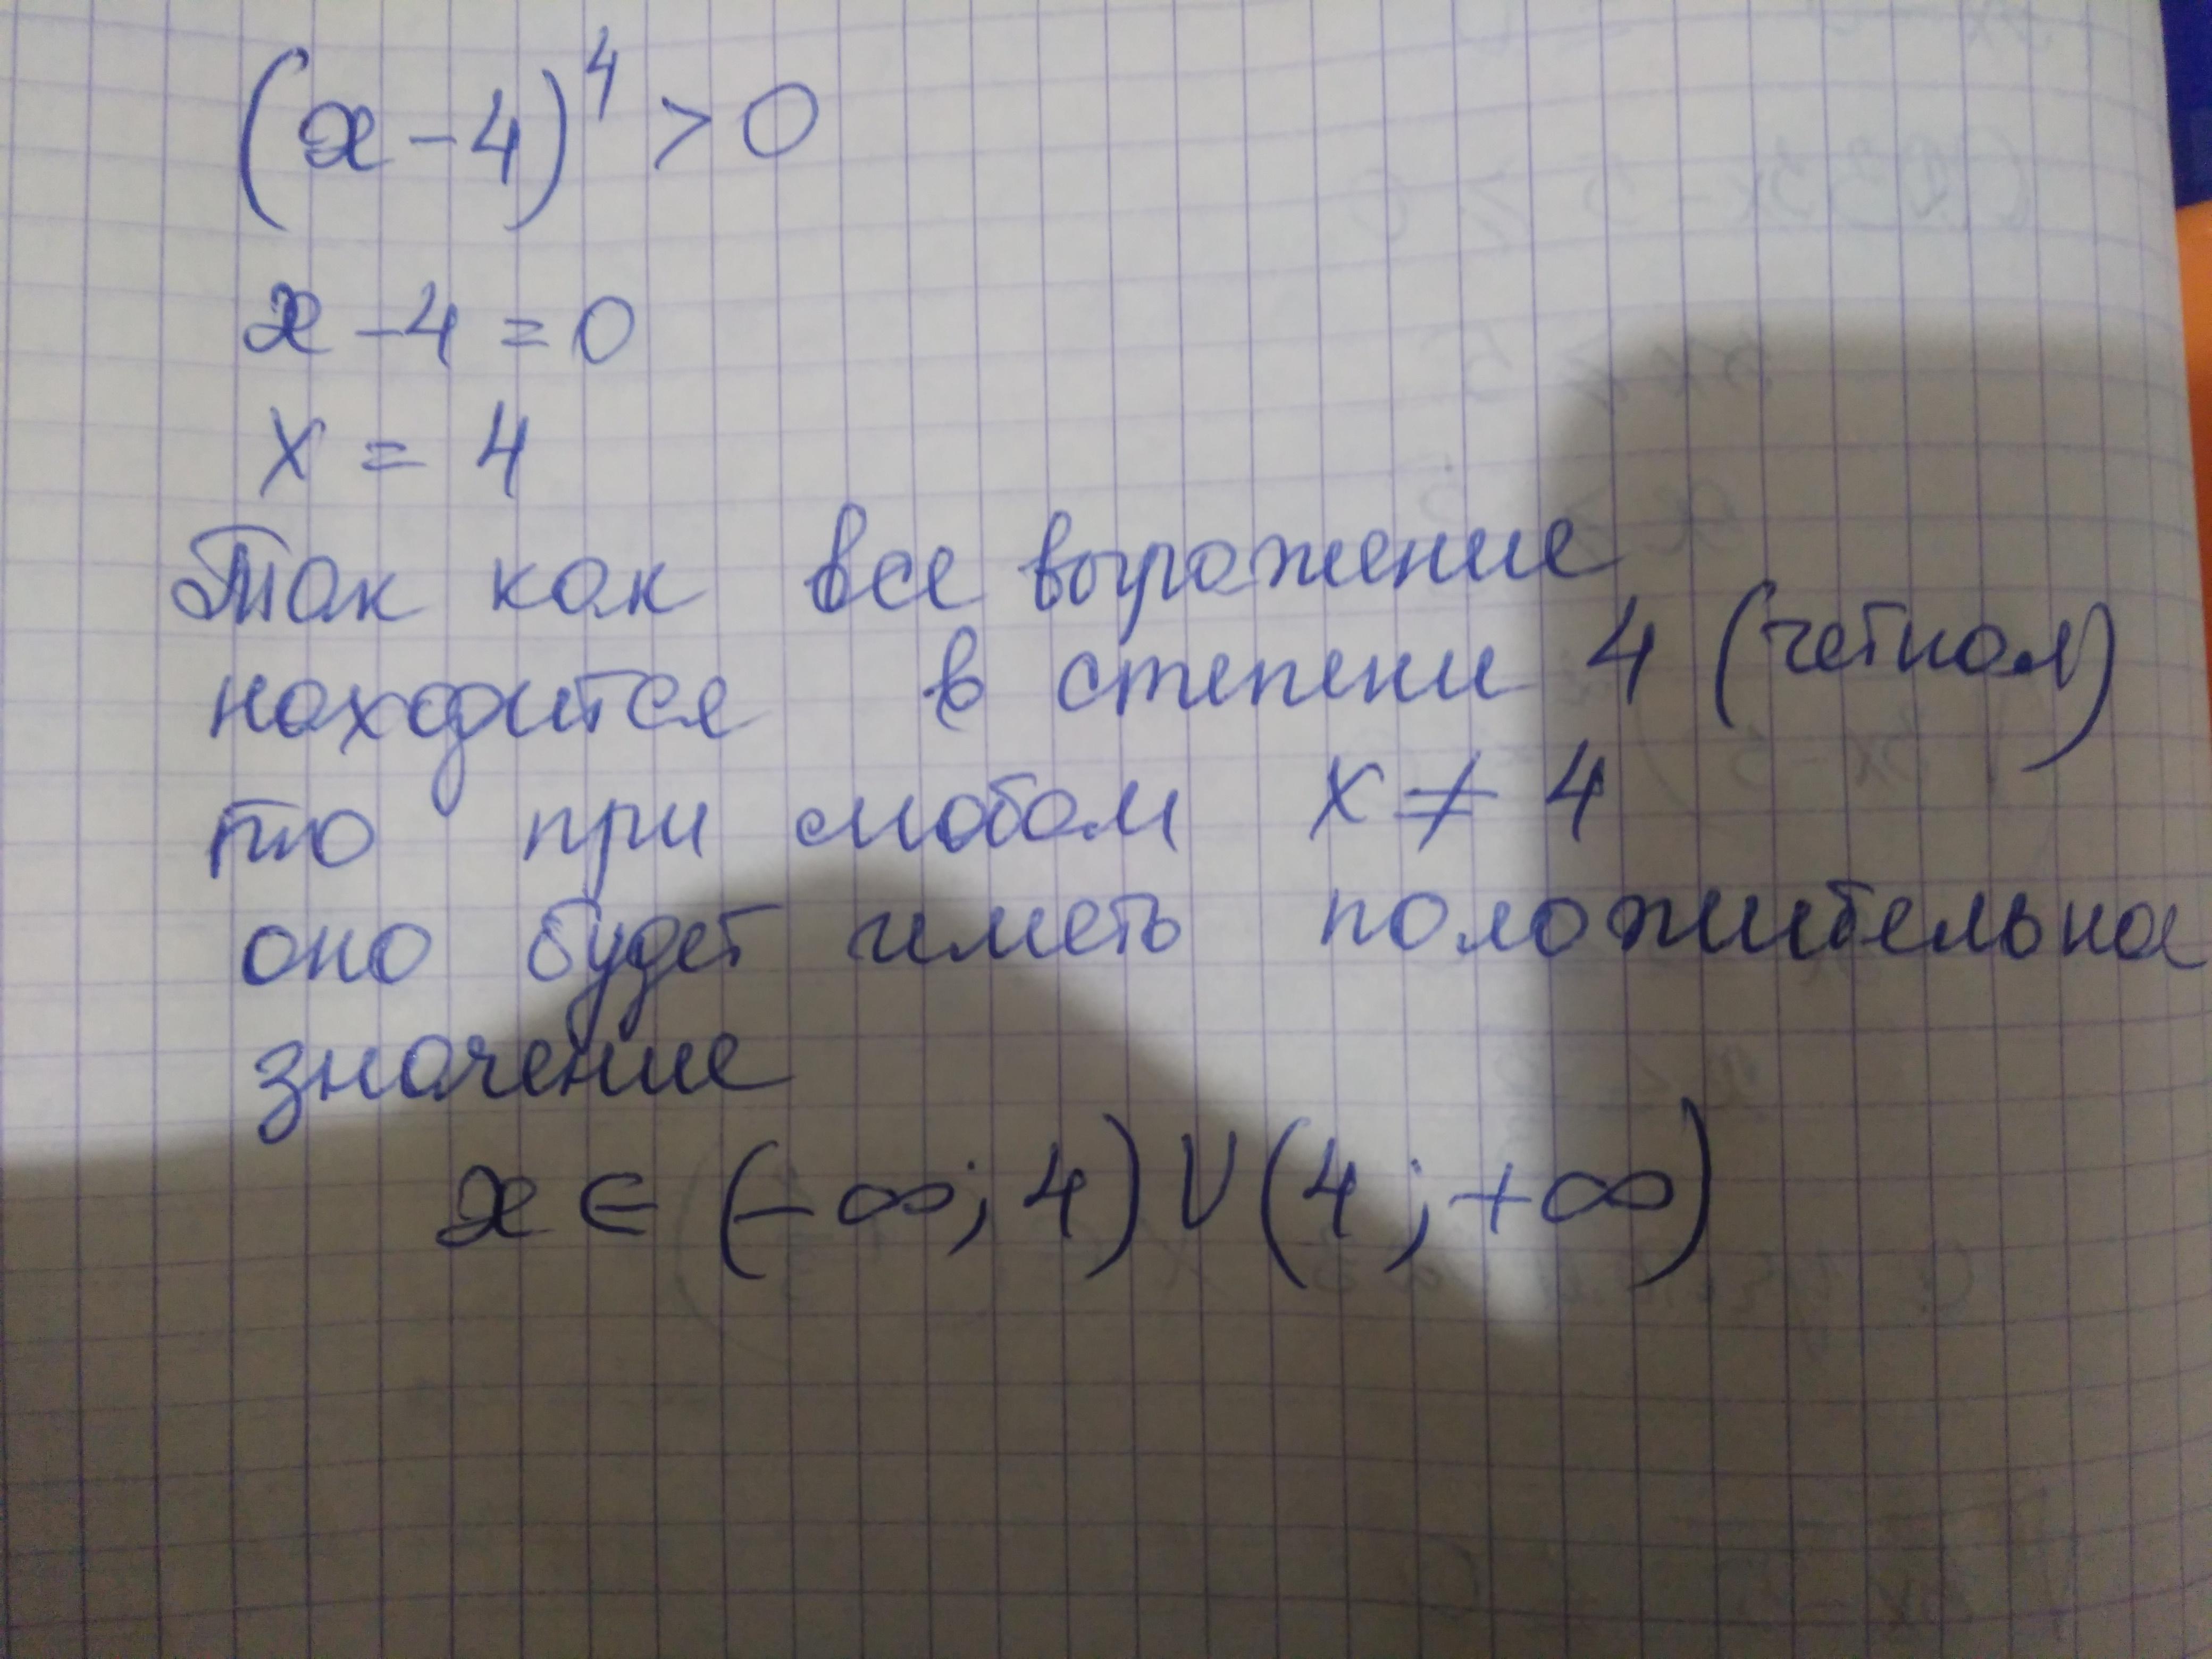 (x-4)⁴ > 0
x-4=0
x = 4
Так как все выражение
находится в степени 4 (четной)
то при любом x ≠ 4
оно будет иметь положительное
значение
x ∈ (-∞; 4) ∪ (4; +∞)